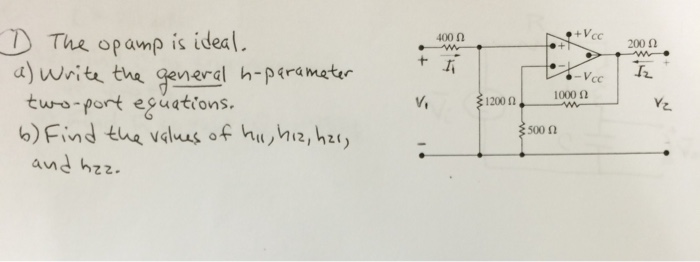 ① The opamp is ideal.
a) Write the general h-parameter
two-port equations.
b) Find the values of h11, h12, h21,
and h22.
400 Ω
+Vcc
200 Ω
+
I1
+
-
-Vcc
I2
+
V1
1200 Ω
1000 Ω
V2
500 Ω
-